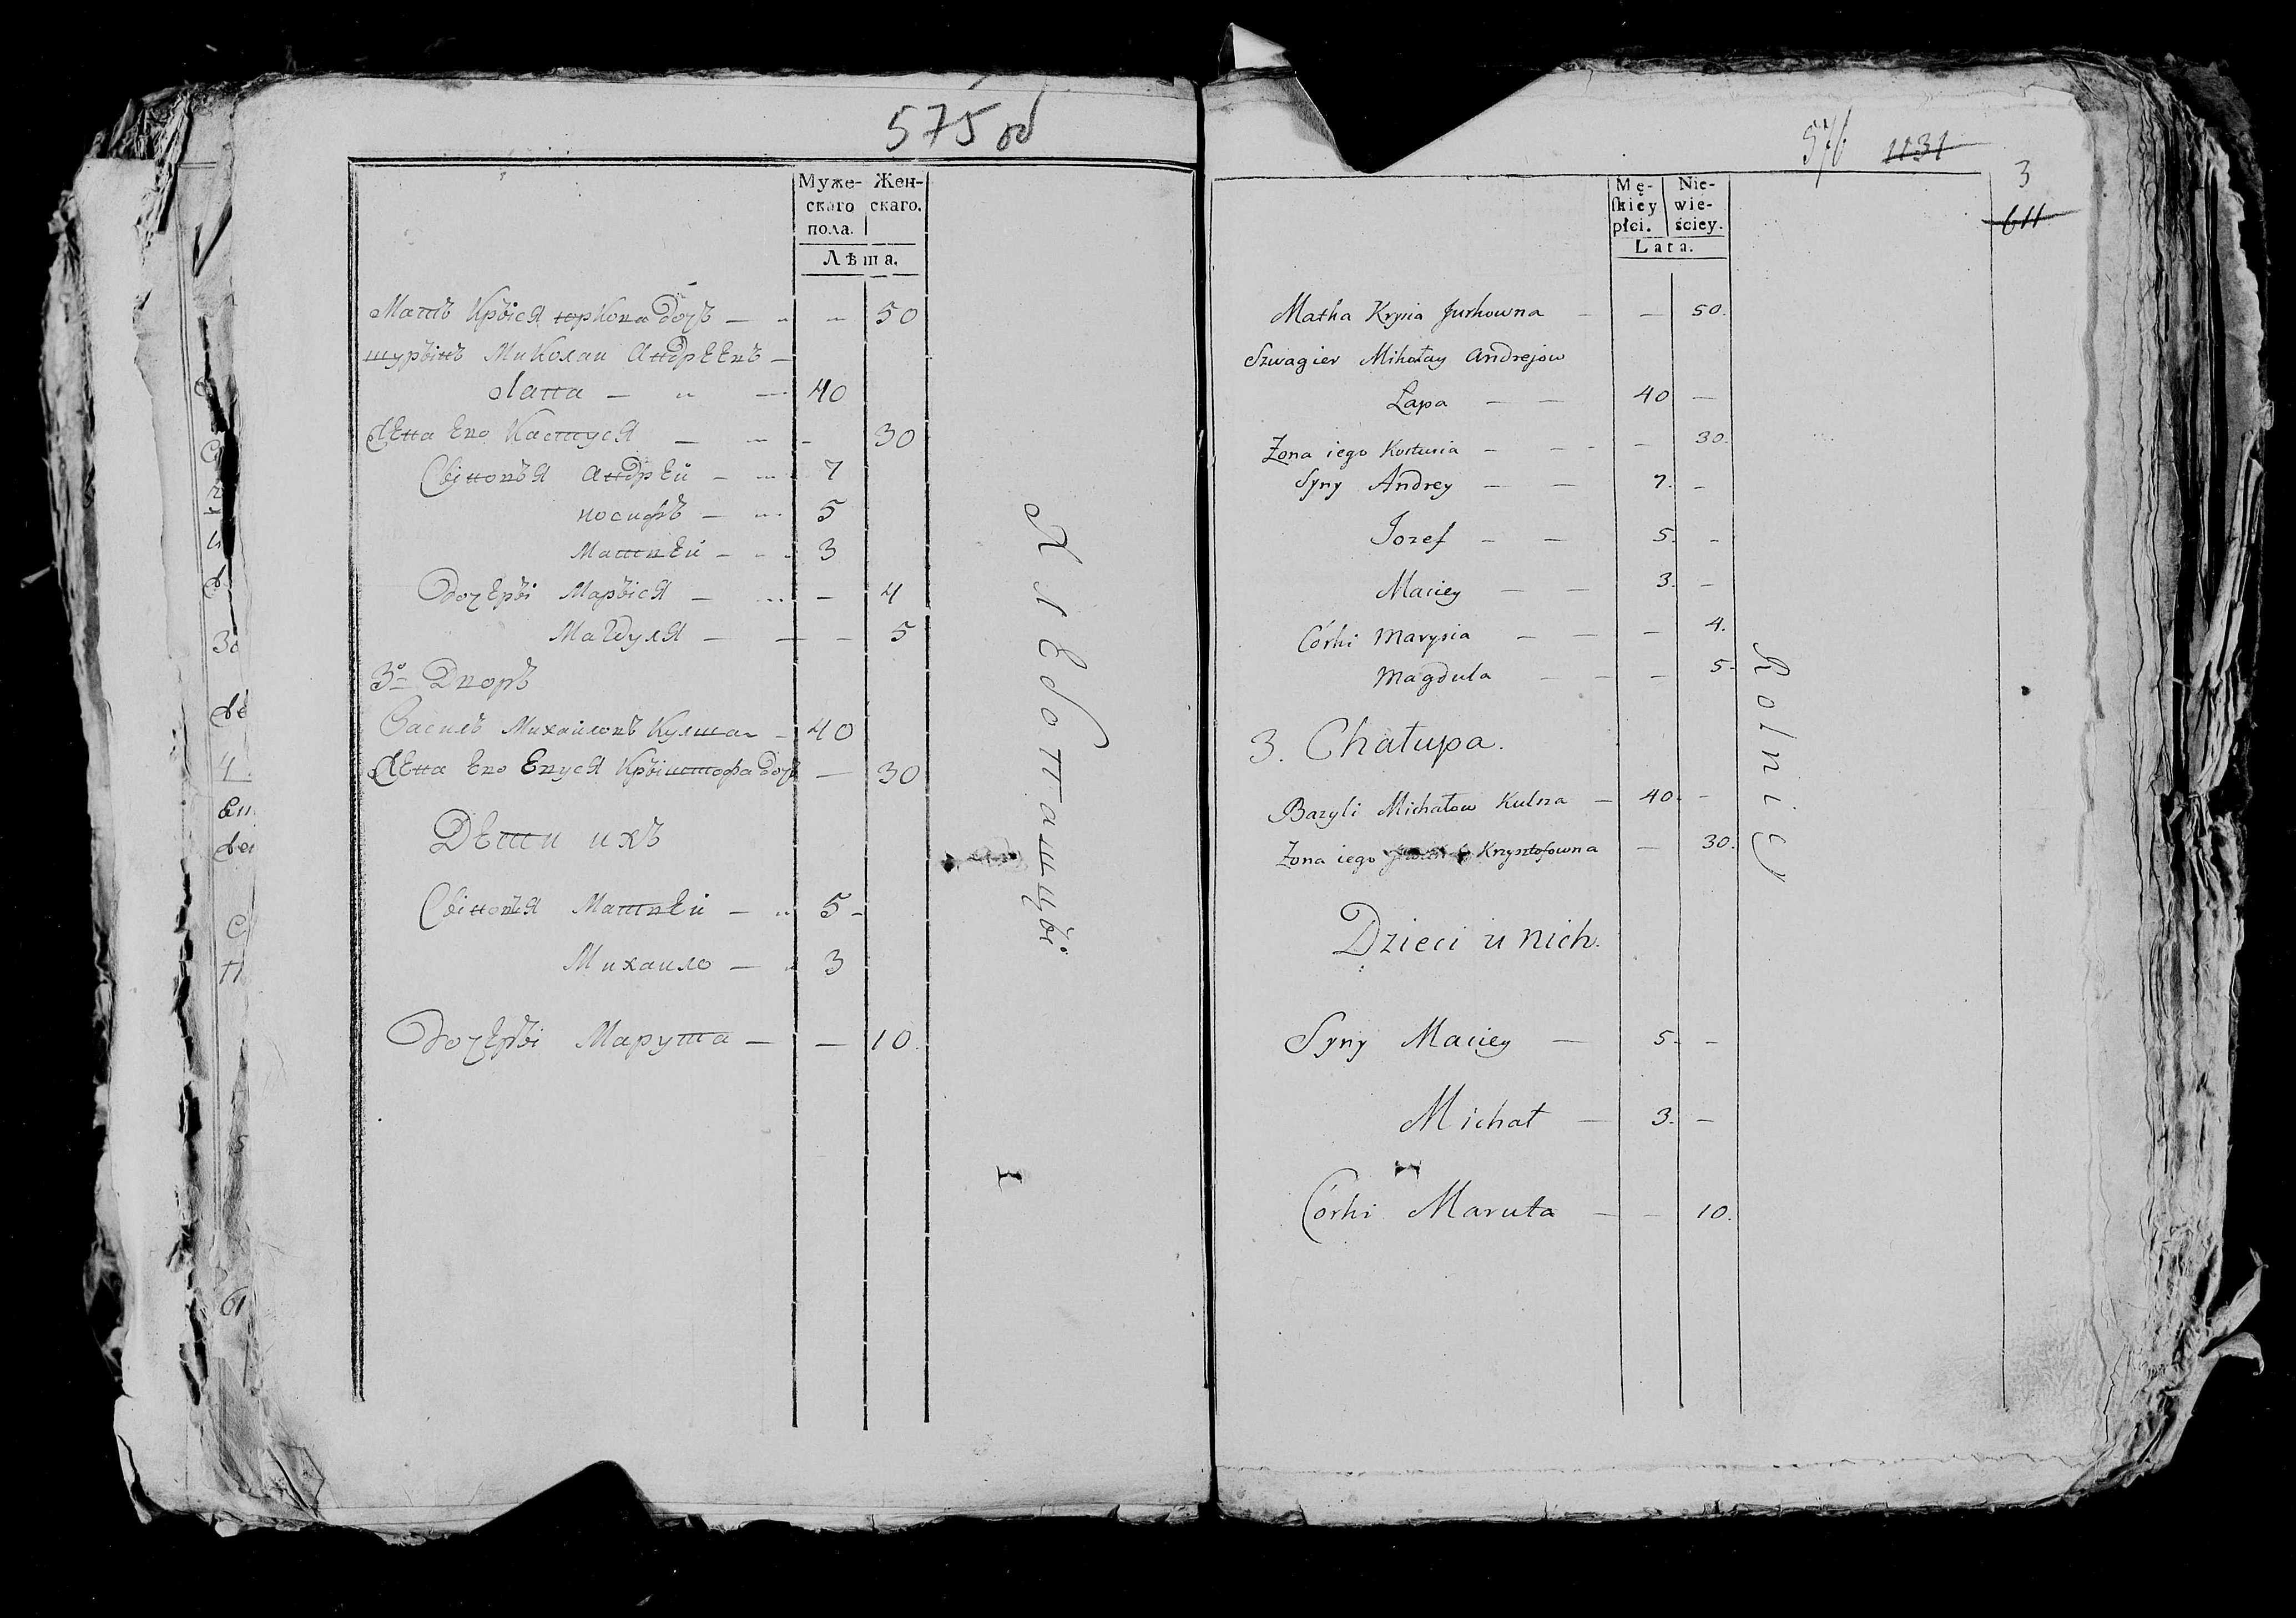 575 об
Муже- Жен-
скаго скаго.
пола.
Лѣта.
Матъ Крыся юркова дочъ — — 50
шурынъ Миколаи Андрѣевъ —
Лапа — — 40
Жена его Кастуся — — — 30
Сыновъя Андрей — — 7
иосифъ — — 5
Матвей — — 3
Дочеры Марыся — — — 4
Магдуля — — — 5
3е Дворъ
Василь Михаиловъ Кулша — 40
Жена его Евуся Крыштофа дочъ — 30
Дети ихъ
Сыновъя Матвей — 5 —
Михаило — 3
Дочеры Марута — — 10.
Хлебопашцы.
576 1131
3
611
Mę- Nie-
skiey wie-
płci. ściey.
Lata.
Matka Krysia Jurkowna — — 50.
Szwagier Mikołay Andrejow
Łapa — — 40 —
Żona iego Kostusia — — — 30.
Syny Andrey — — 7. —
Jozef — — 5. —
Maciey — — 3. —
Córki Marysia — — — 4.
Magdula — — — 5.
3. Chałupa.
Bazyli Michałow Kulsza — 40. —
Żona iego Krzysztofowna — 30.
Dzieci u nich.
Syny Maciey — 5. —
Michał — 3. —
Córki Maruta — — 10.
Rolnicy